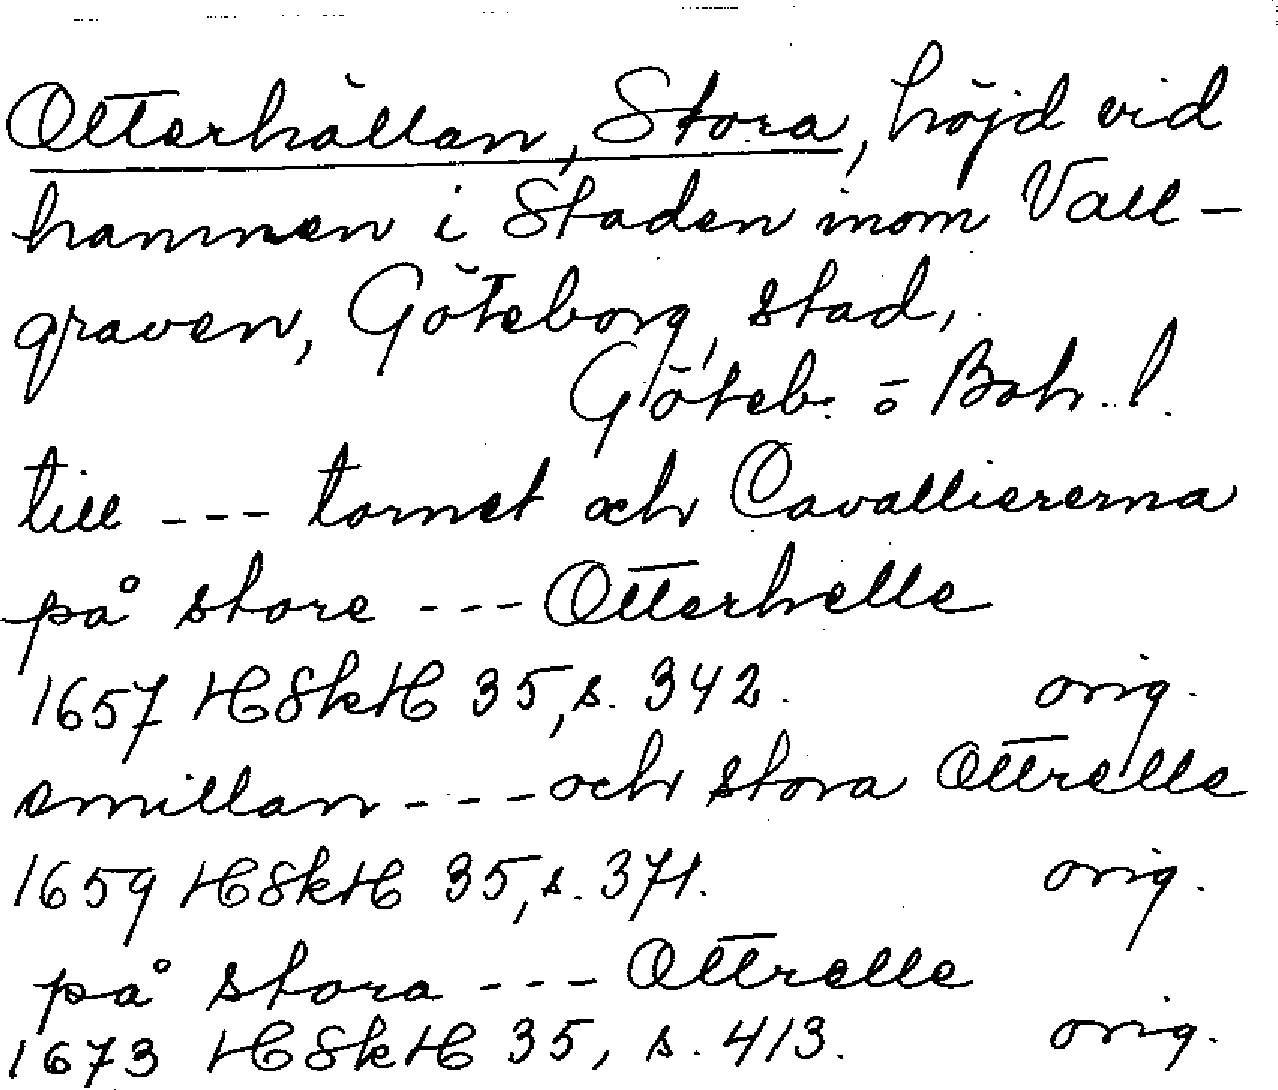 Otterhällan, Stora, höjd vid
hamnen i Staden inom Vall-
graven, Göteborg, stad,
Göteb. o Boh. l.
till --- tornet och Cavalliererna
på store --- Otterhelle
1657 HSkH 35, s. 342. orig.
emillan --- och stora Ottrelle
1659 HSkH 35, s. 371. orig.
på stora --- Ottrelle
1673 HSkH 35, s. 413. orig.